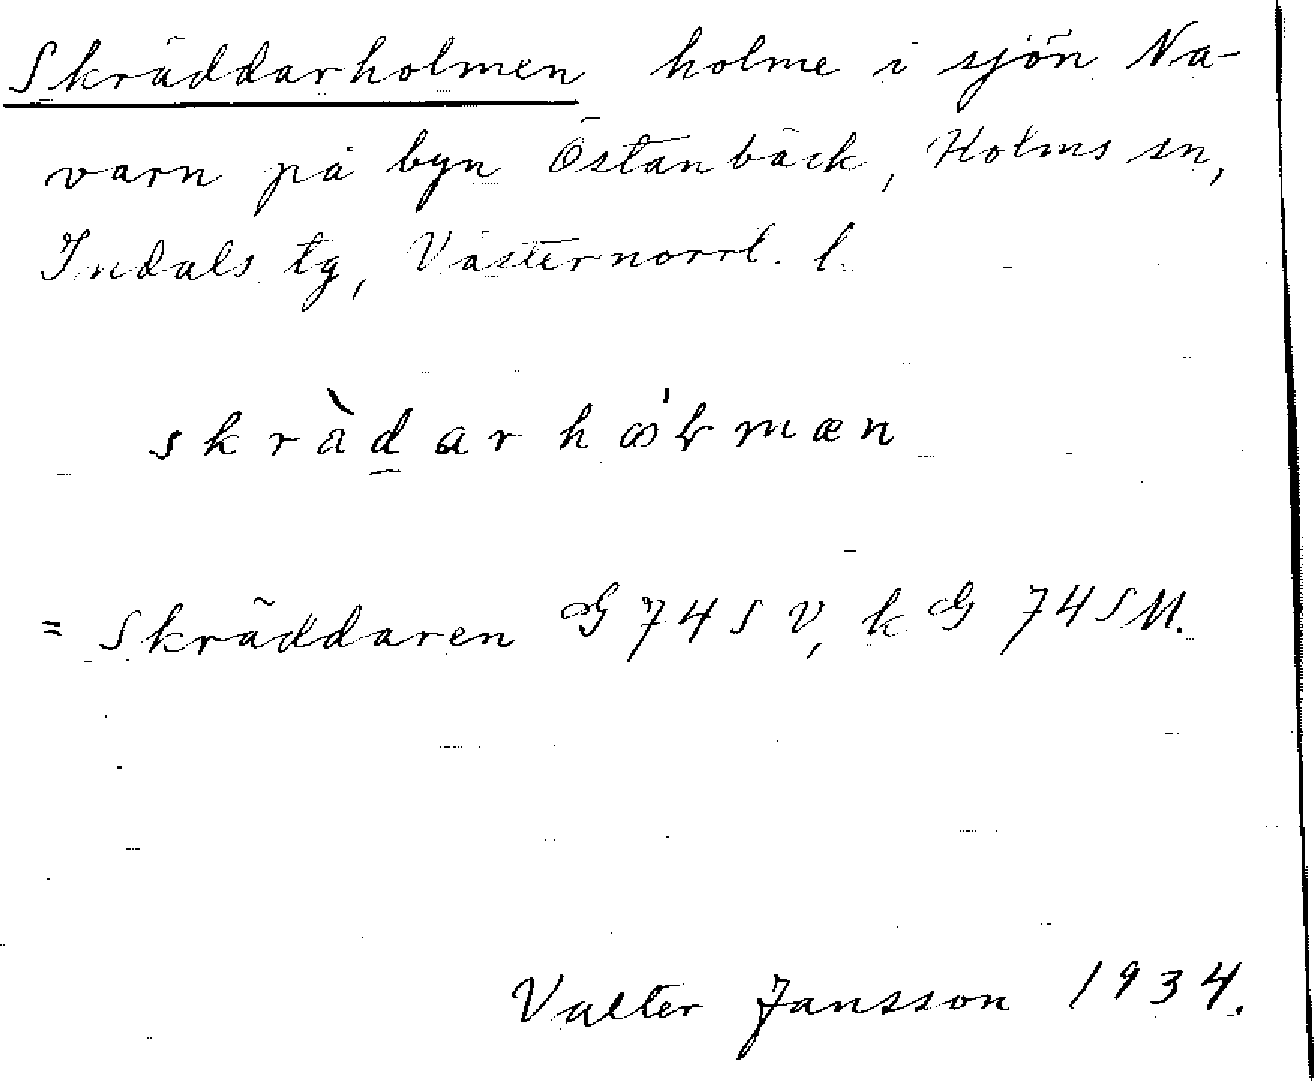 Skräddarholmen holme i sjön Na-
varn på byn Östanbäck, Holms sn,
Indals tg, Västernorrl. l.
= Skräddaren G 74 S V, k G 74 S M.
Valter Jansson 1934.